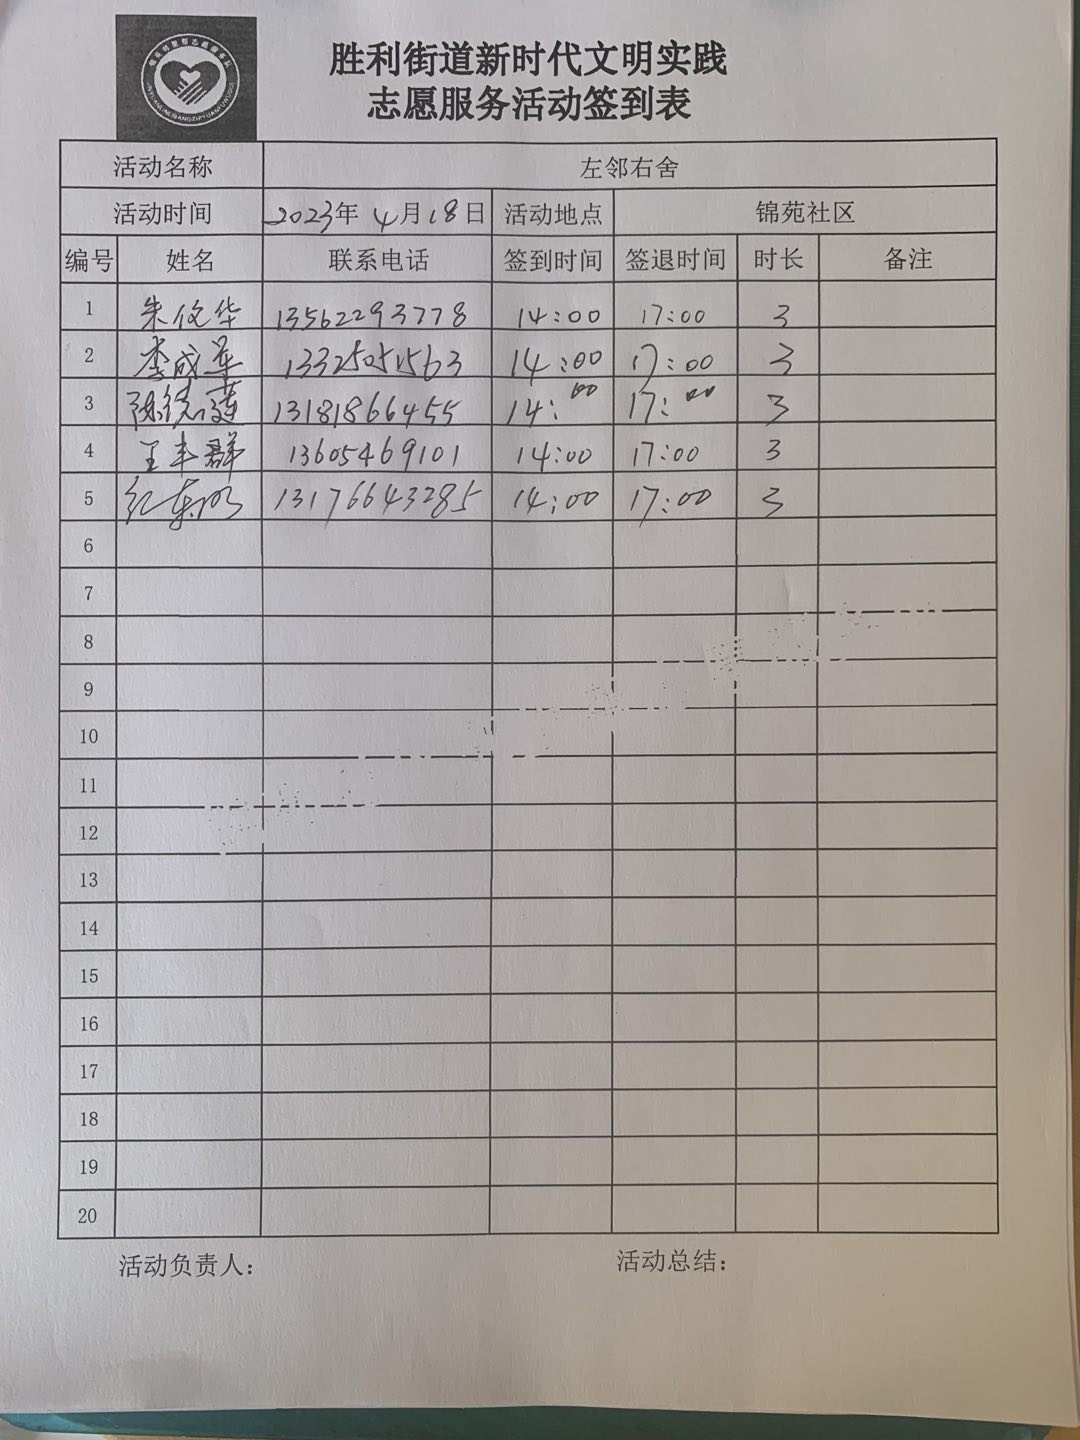 胜利街道新时代文明实践
志愿服务活动签到表
活动名称 左邻右舍
活动时间 2023年 4月18日 活动地点 锦苑社区
编号 姓名 联系电话 签到时间 签退时间 时长 备注
1 朱仪华 13562293778 14:00 17:00 3
2 李成军 13325051563 14:00 17:00 3
3 13181866455 14:00 17:00 3
4 王丰群 13605469101 14:00 17:00 3
5 纪东明 13176643285 14:00 17:00 3
6
7
8
9
10
11
12
13
14
15
16
17
18
19
20
活动负责人： 活动总结：